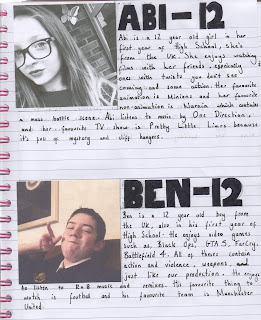 ABI-12
Abi is a 12 year old girl in her
first year of High School, she's
from the UK. She enjoys watching
films with her friends, especially
ones with twists you don't see
coming and some action. Her favourite
animation is Minions and her favourite
non-animation is Narnia which contains
a mass battle scene. Abi listens to music by One Direction,
and her favourite TV show is Pretty Little Liars because
it's full of mystery and cliff hangers.
BEN-12
Ben is a 12 year old boy from
the UK, also in his first year of
High School. He enjoys video games
such as, Black Ops, GTA 5, FarCry,
Battlefield 4. All of theirs contain
action and violence, weapons and
just like our production. He enjoys
to listen to R&B music and remixes. His favourite thing to
watch is football and his favourite team is Manchester
United.